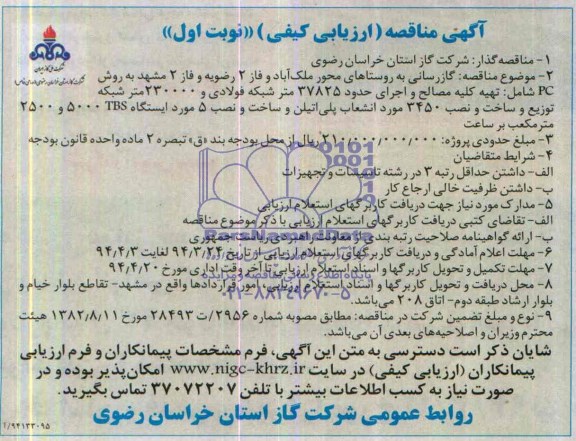 آگهی مناقصه (ارزیابی کیفی) «نوبت اول»
شرکت ملی گاز ایران
شرکت گاز استان خراسان رضوی
۱- مناقصه‌گذار: شرکت گاز استان خراسان رضوی
۲- موضوع مناقصه: گازرسانی به روستاهای محور ملک‌آباد و فاز ۲ رضویه و فاز ۲ مشهد به روش
PC شامل: تهیه کلیه مصالح و اجرای حدود ۳۷۸۲۵ متر شبکه فولادی و ۲۳۰۰۰۰ متر شبکه
توزیع و ساخت و نصب ۳۴۵۰ مورد انشعاب پلی‌اتیلن و ساخت و نصب ۵ مورد ایستگاه TBS ۵۰۰۰ و ۲۵۰۰
مترمکعب بر ساعت
۳- مبلغ حدودی پروژه: ۲۱۰/۰۰۰/۰۰۰/۰۰۰ ریال از محل بودجه بند «ق» تبصره ۲ ماده واحده قانون بودجه
۴- شرایط متقاضیان
الف- داشتن حداقل رتبه ۳ در رشته تاسیسات و تجهیزات
ب- داشتن ظرفیت خالی ارجاع کار
۵- مدارک مورد نیاز جهت دریافت کاربرگهای استعلام ارزیابی
الف- تقاضای کتبی دریافت کاربرگهای استعلام ارزیابی با ذکر موضوع مناقصه
ب- ارائه گواهینامه صلاحیت رتبه بندی از معاونت راهبردی ریاست جمهوری
۶- مهلت اعلام آمادگی و دریافت کاربرگهای استعلام ارزیابی از تاریخ ۹۴/۳/۲۴ لغایت ۹۴/۴/۳
۷- مهلت تکمیل و تحویل کاربرگها و اسناد استعلام ارزیابی تا آخر وقت اداری مورخ ۹۴/۴/۲۰
۸- محل دریافت و تحویل کاربرگها و اسناد استعلام ارزیابی، امور قراردادها واقع در مشهد- تقاطع بلوار خیام و
بلوار ارشاد طبقه دوم- اتاق ۲۰۸ می‌باشد.
۹- نوع و مبلغ تضمین شرکت در مناقصه: مطابق مصوبه شماره ۲۹۵۶/ت ۲۸۴۹۳ مورخ ۱۳۸۲/۸/۱۱ هیئت
محترم وزیران و اصلاحیه‌های بعدی آن می‌باشد.
شایان ذکر است دسترسی به متن این آگهی، فرم مشخصات پیمانکاران و فرم ارزیابی
پیمانکاران (ارزیابی کیفی) در سایت www.nigc-khrz.ir امکان‌پذیر بوده و در
صورت نیاز به کسب اطلاعات بیشتر با تلفن ۳۷۰۷۲۲۰۷ تماس بگیرید.
روابط عمومی شرکت گاز استان خراسان رضوی
۹۴۱۳۳۰۹۵/آ
ParsNamadData
۰۲۱-۸۸۳۴۹۶۷۰-۵